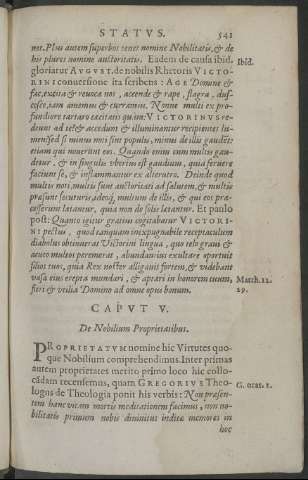 STATVS. 541
net. Plus autem superbos tenet nomine Nobilitatis, & de
his plures nomine auctoritatis. Eadem de causa ibid. Ibid.
gloriatur AVGVST. de nobilis Rhetoris VICTO-
RINI conuersione ita scribens: AGE Domine &
fac, excita & reuoca nos, accende & rape, flagra, dul-
cesce, iam amemus & curramus. Nonne multi ex pro-
fundiore tartaro cæcitatis quàm VICTORINVS re-
deunt ad te & accedunt & illuminantur recipientes lu-
men? sed si minus noti sint populis, minus de illis gaudent
etiam qui nouerunt eos. Quando enim cum multis gau-
detur, & in singulis vberius est gaudium, quia feruere
faciunt se, & inflammantur ex alterutro. Deinde quod
multis noti, multis sunt auctoritati ad salutem, & multis
præsunt secuturis, adeoq́; multum de illis, & qui eos præ-
cesserunt lætantur, quia non de solis lætantur. Et paulo
post: Quanto igitur gratius cogitabatur VICTORI-
NI pectus, quod tanquam inexpugnabile receptaculum
diabolus obtinuerat Victorini lingua, quo telo graui &
acuto multos peremerat, abundantius exultare oportuit
filios tuos, quia Rex noster alligauit fortem, & videbant
vasa eius erepta mundari, & aptari in honorem tuum, Matth. 12.
fieri & vtilia Domino ad omne opus bonum. 29.
CAPVT V.
De Nobilium Proprietatibus.
PROPRIETATVM nomine hic Virtutes quo-
que Nobilium comprehendimus. Inter primas
autem proprietates merito primo loco hic collo-
cādam recensemus, quam GREGORIVS Theo-
logus de Theologia ponit his verbis: Non præsen- G. orat. 1.
tem hanc vitam mortis meditationem facimus, non no-
bilitatis primum nobis diuinitus inditæ memores in
hoc